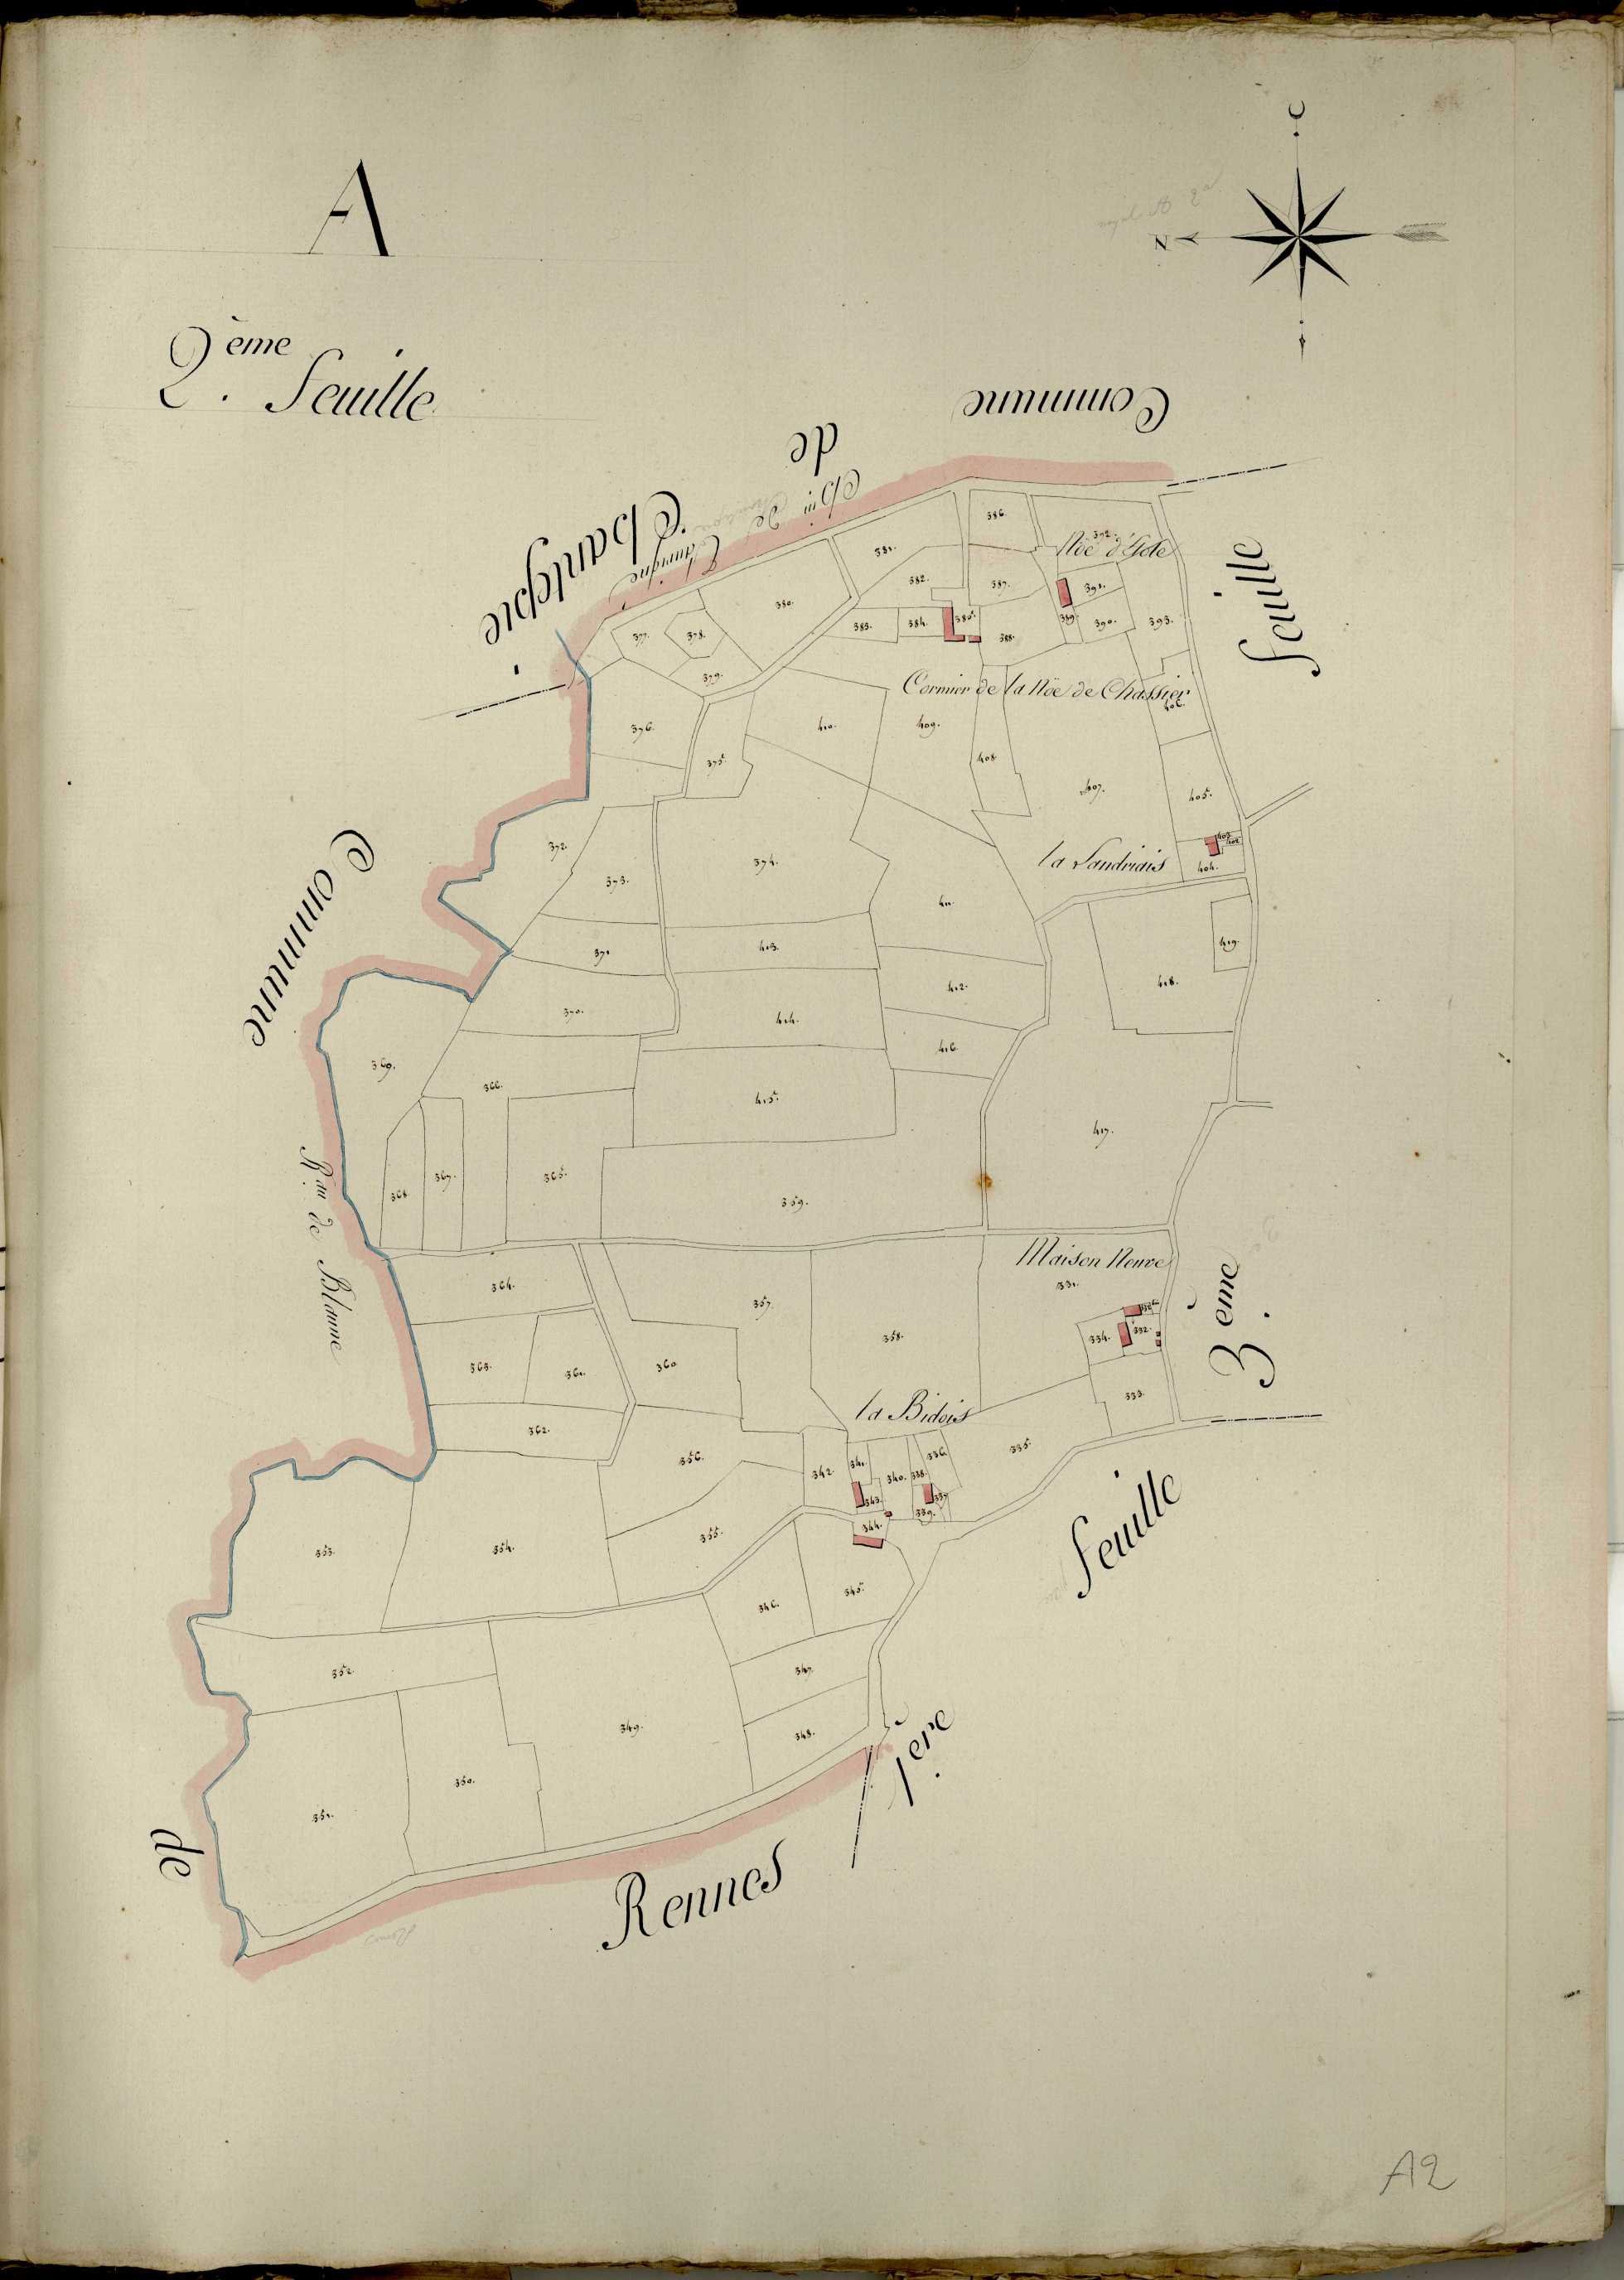 A
2.ème feuille
N
Commune
de
Chantepie
Ch.in de Chauvigné
feuille
386.
392.
Nöe d'Gole
381.
382.
387.
391.
380.
383.
384.
385.
388.
389.
390.
393.
377.
378.
379.
Cormier de la Nöe de Chassier
406.
376.
375.
410.
409.
408.
407.
405.
Commune
372.
373.
374.
la Landriais
403.
402.
404.
411.
371.
413.
419.
370.
412.
418.
414.
416.
369.
366.
415.
417.
R.au de Blanne
368.
367.
365.
359.
Maison Neuve
331.
3.ème
364.
357.
358.
334.
332.
363.
361.
360.
333.
la Bidois
362.
356.
342.
341.
340.
338.
336.
335.
343.
337.
339.
344.
feuille
353.
354.
355.
346.
345.
352.
347.
349.
348.
1.ère
350.
351.
de
Rennes
A2